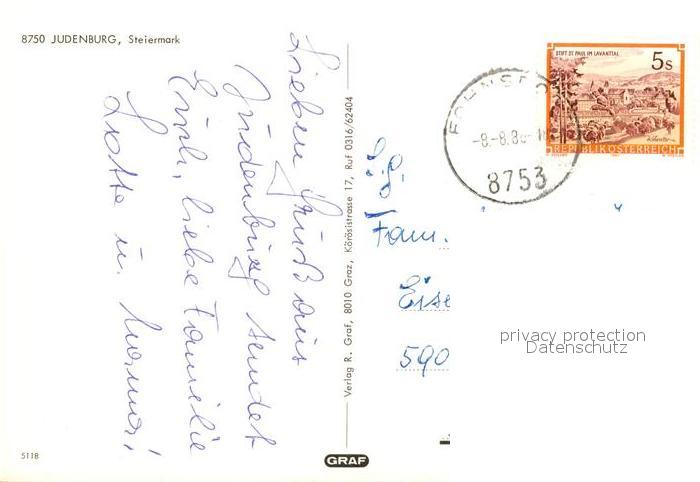 8750 JUDENBURG, Steiermark
Lieben Gruß aus
Judenburg sendet
Euch, liebe Familie
Lotte u.
Verlag R. Graf, 8010 Graz, Körösistrasse 17, Ruf 0316/62404
STIFT ST. PAUL IM LAVANTTAL
5s
REPUBLIK ÖSTERREICH
-8.-8.86-
8753
Fam.
Eise
590
privacy protection
Datenschutz
5118
GRAF